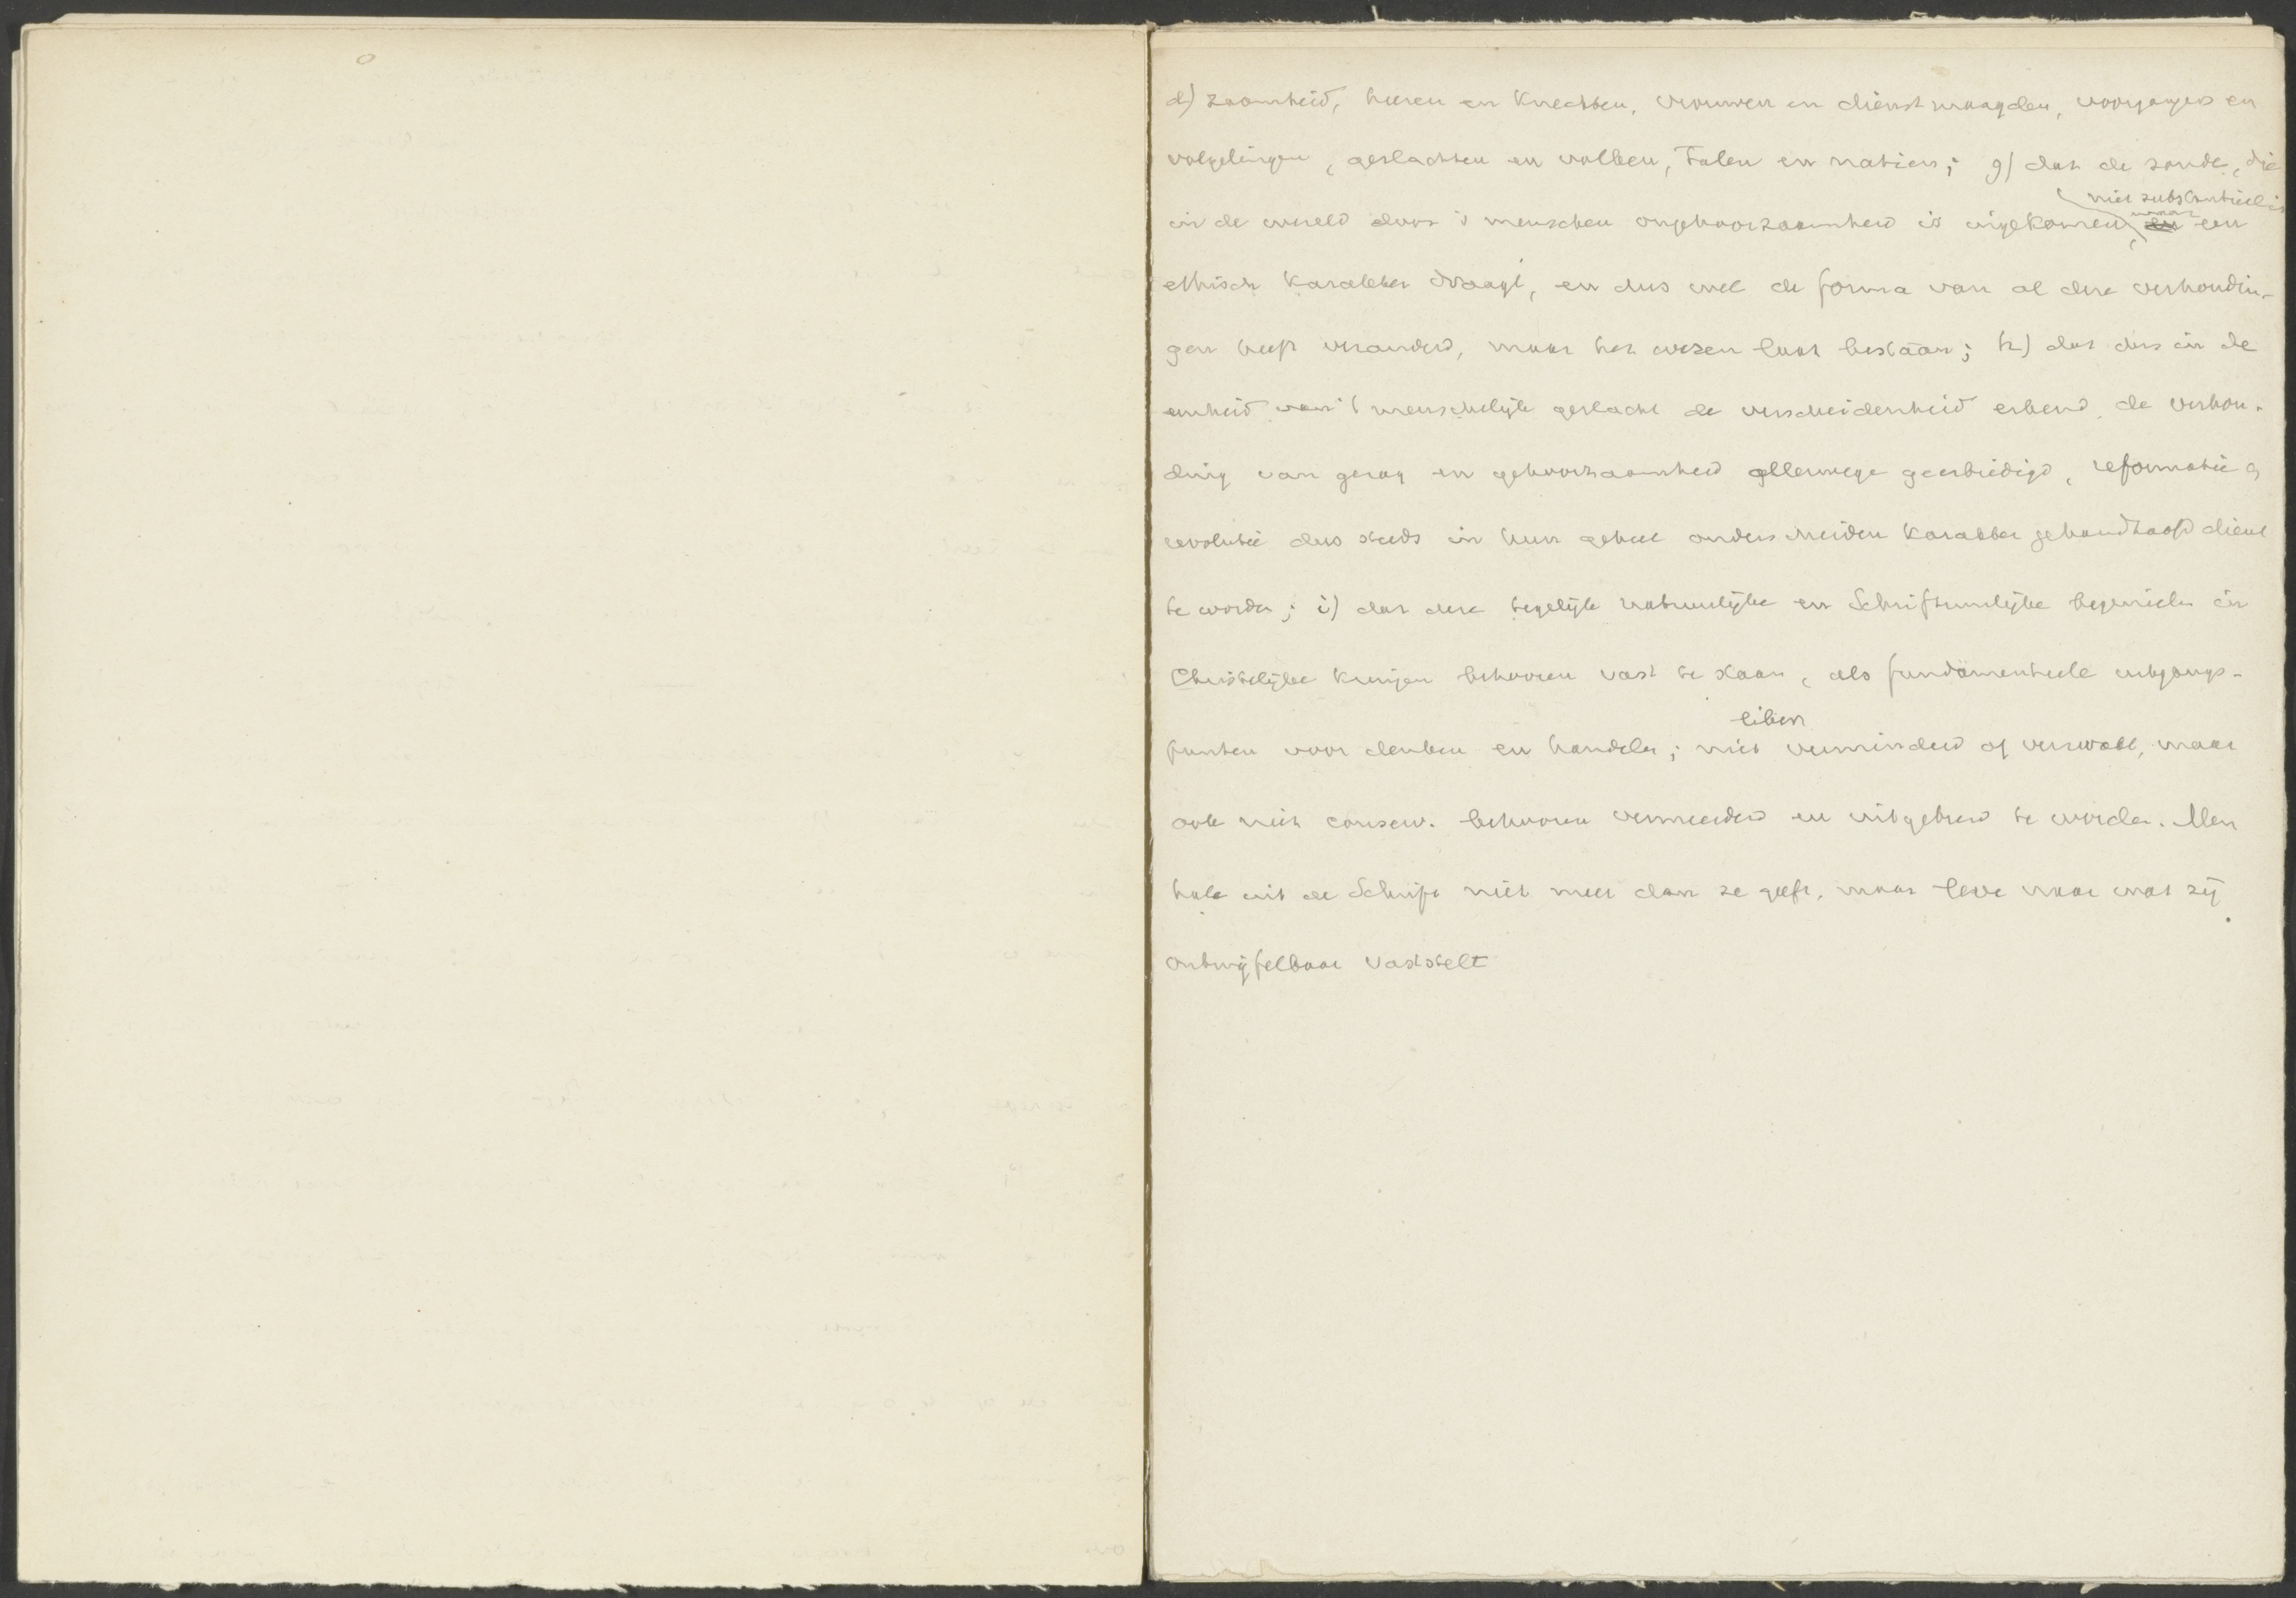 d) zaamheid, heeren en knechten, vrouwen en dienstmaagden, voorgangers en
volgelingen, geslachten en volken, talen en natiën; g) dat de zonde, die
niet substantieel is
in de wereld door 's menschen ongehoorzaamheid is ingekomen, maar een
ethisch karakter draagt, en dus wel de forma van al deze verhoudin-
gen heeft veranderd, maar het wezen laat bestaan; h) dat dus in de
eenheid van 't menschelijk geslacht de verscheidenheid erkend, de verhou-
ding van gezag en gehoorzaamheid allerwege geerbiedigd, reformatie en
revolutie dus steeds in hun geheel onderscheiden karakter gehandhaafd dient
te worden; i) dat deze tegelijk natuurlijke en Schriftuurlijke beginselen in
Christelijke kringen behooren vast te staan, als fundamenteele uitgangs-
liber.
punten voor denken en handelen; niet verminderd of verzwakt, maar
ook niet conserv. behooren vermeerderd en uitgebreid te worden. Men
hale uit de Schrift niet meer dan ze geeft, maar leve naar wat zij
ontwijfelbaar vaststelt